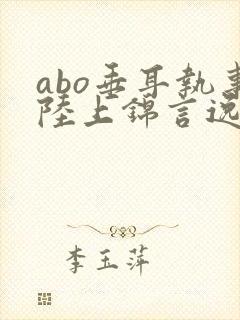 abo垂耳執事
陸上錦言逸
李玉萍